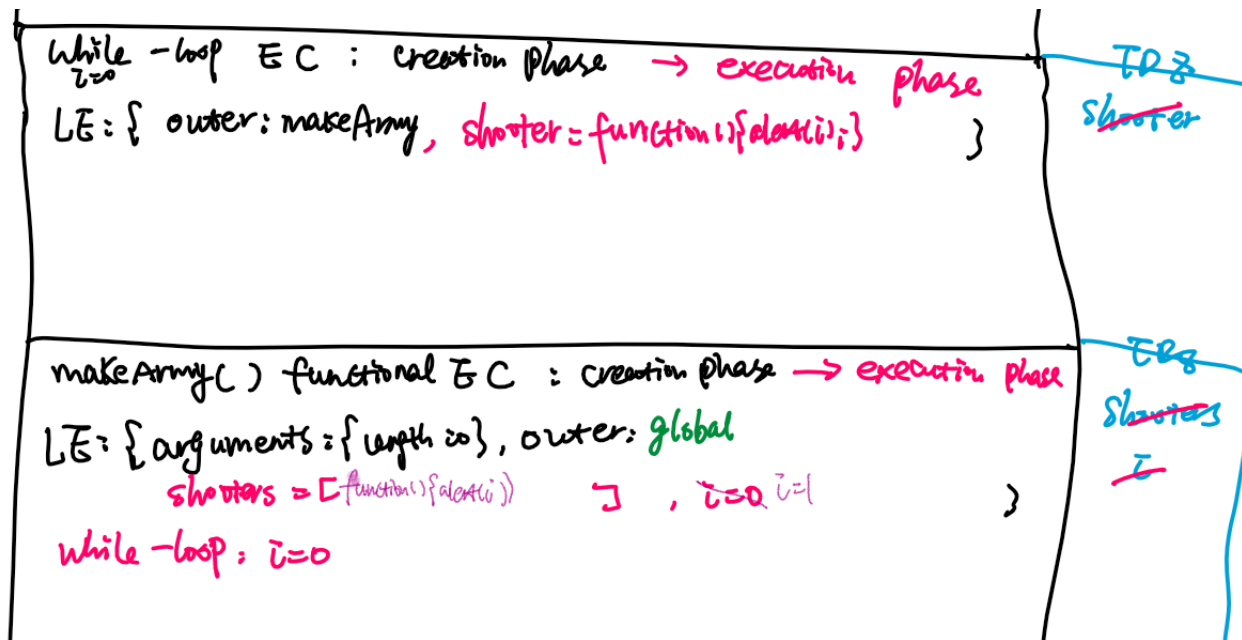 while-loop EC : creation phase → execution phase
i=0
TDZ
LE:{ outer: makeArmy, shooter=function(){alert(i);} }
shooter
makeArmy() functional EC : creation phase → execution phase
TDZ
LE:{arguments:{length:0}, outer: global
shooters
shooters = [function(){alert(i)} ] , i=0 i=1 }
i
while-loop: i=0